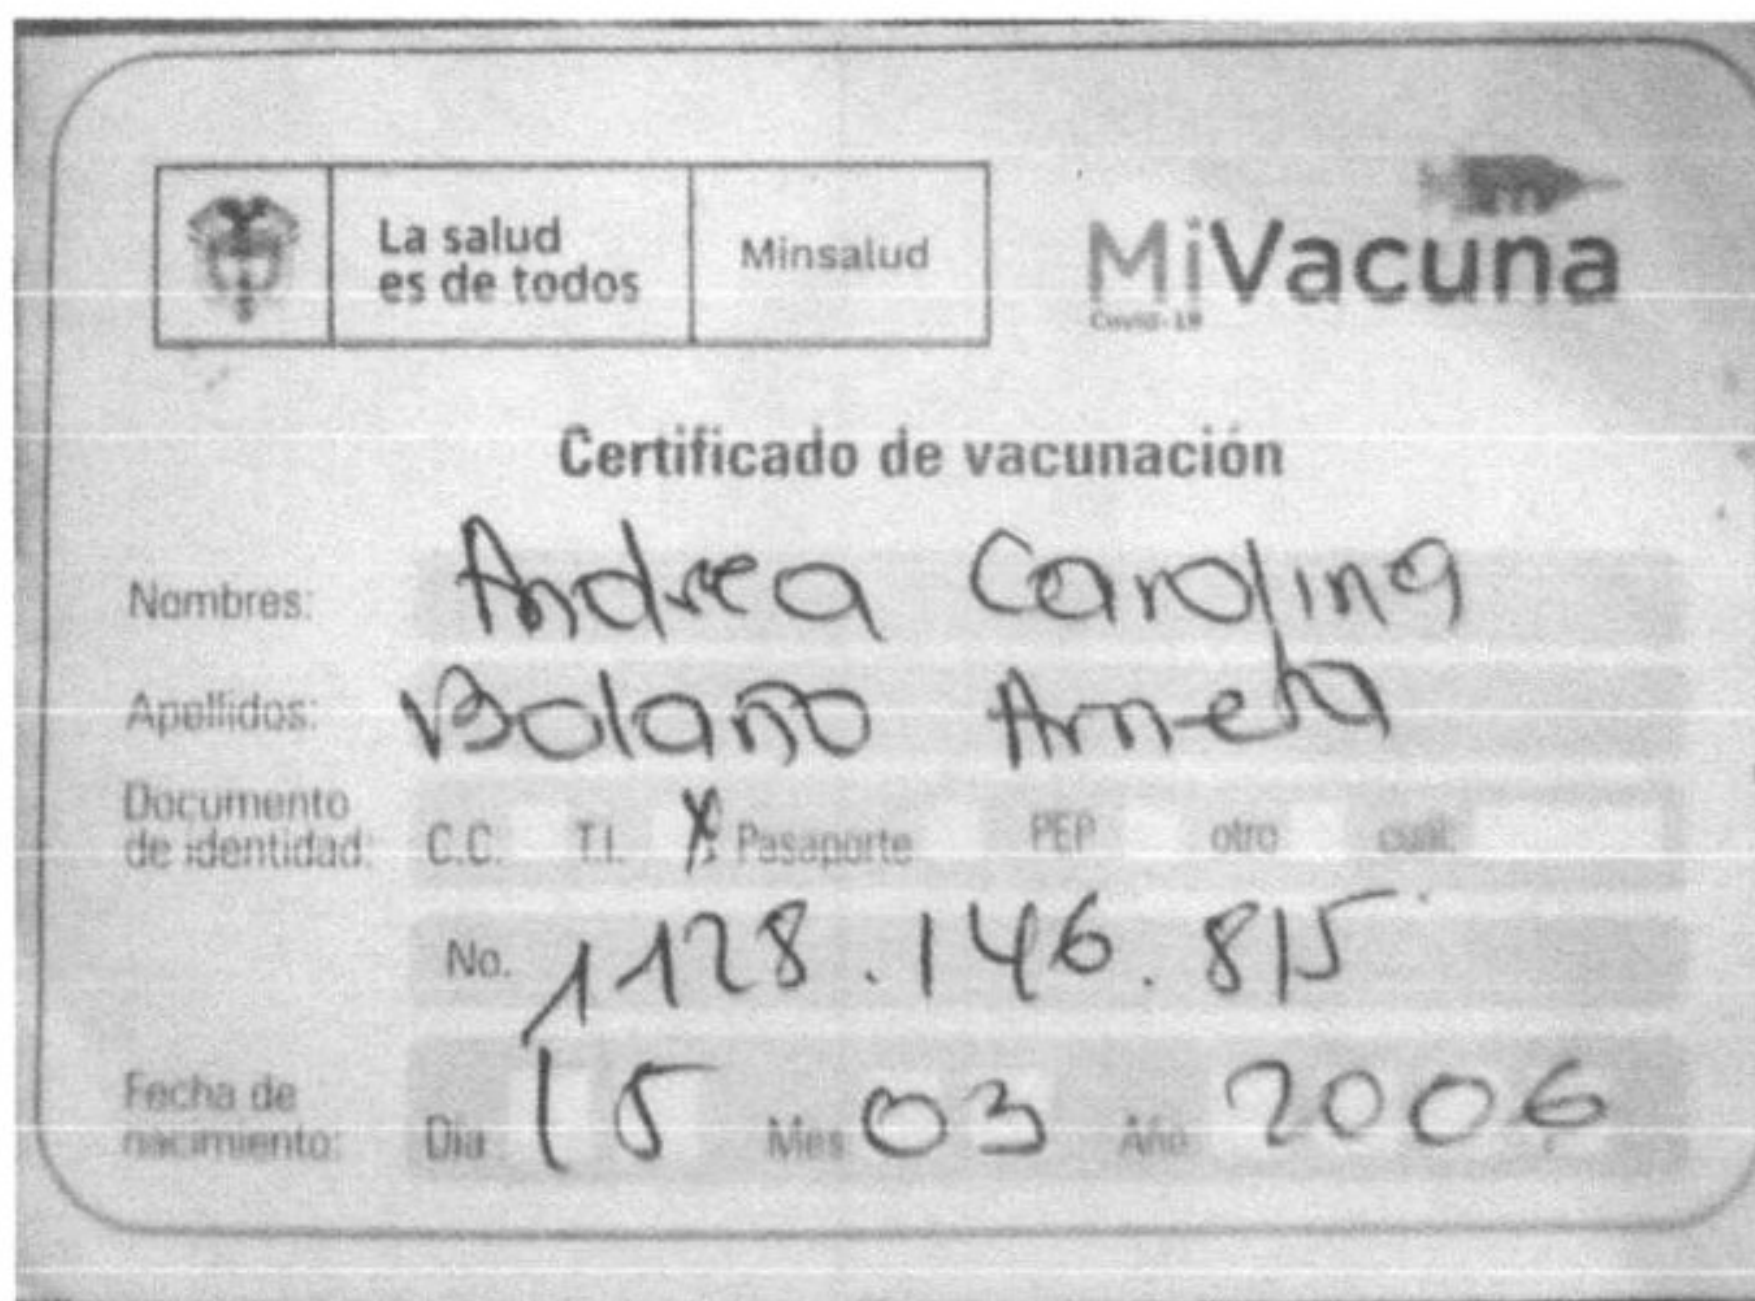 La salud
es de todos
Minsalud
MiVacuna
Covid-19
Certificado de vacunación
Nombres: Andrea Carolina
Apellidos: Bolaño
Documento
de identidad: C.C. T.I. X Pasaporte PEP otro cual:
No. 1128.146.815
Fecha de
nacimiento: Día 15 Mes 03 Año 2006